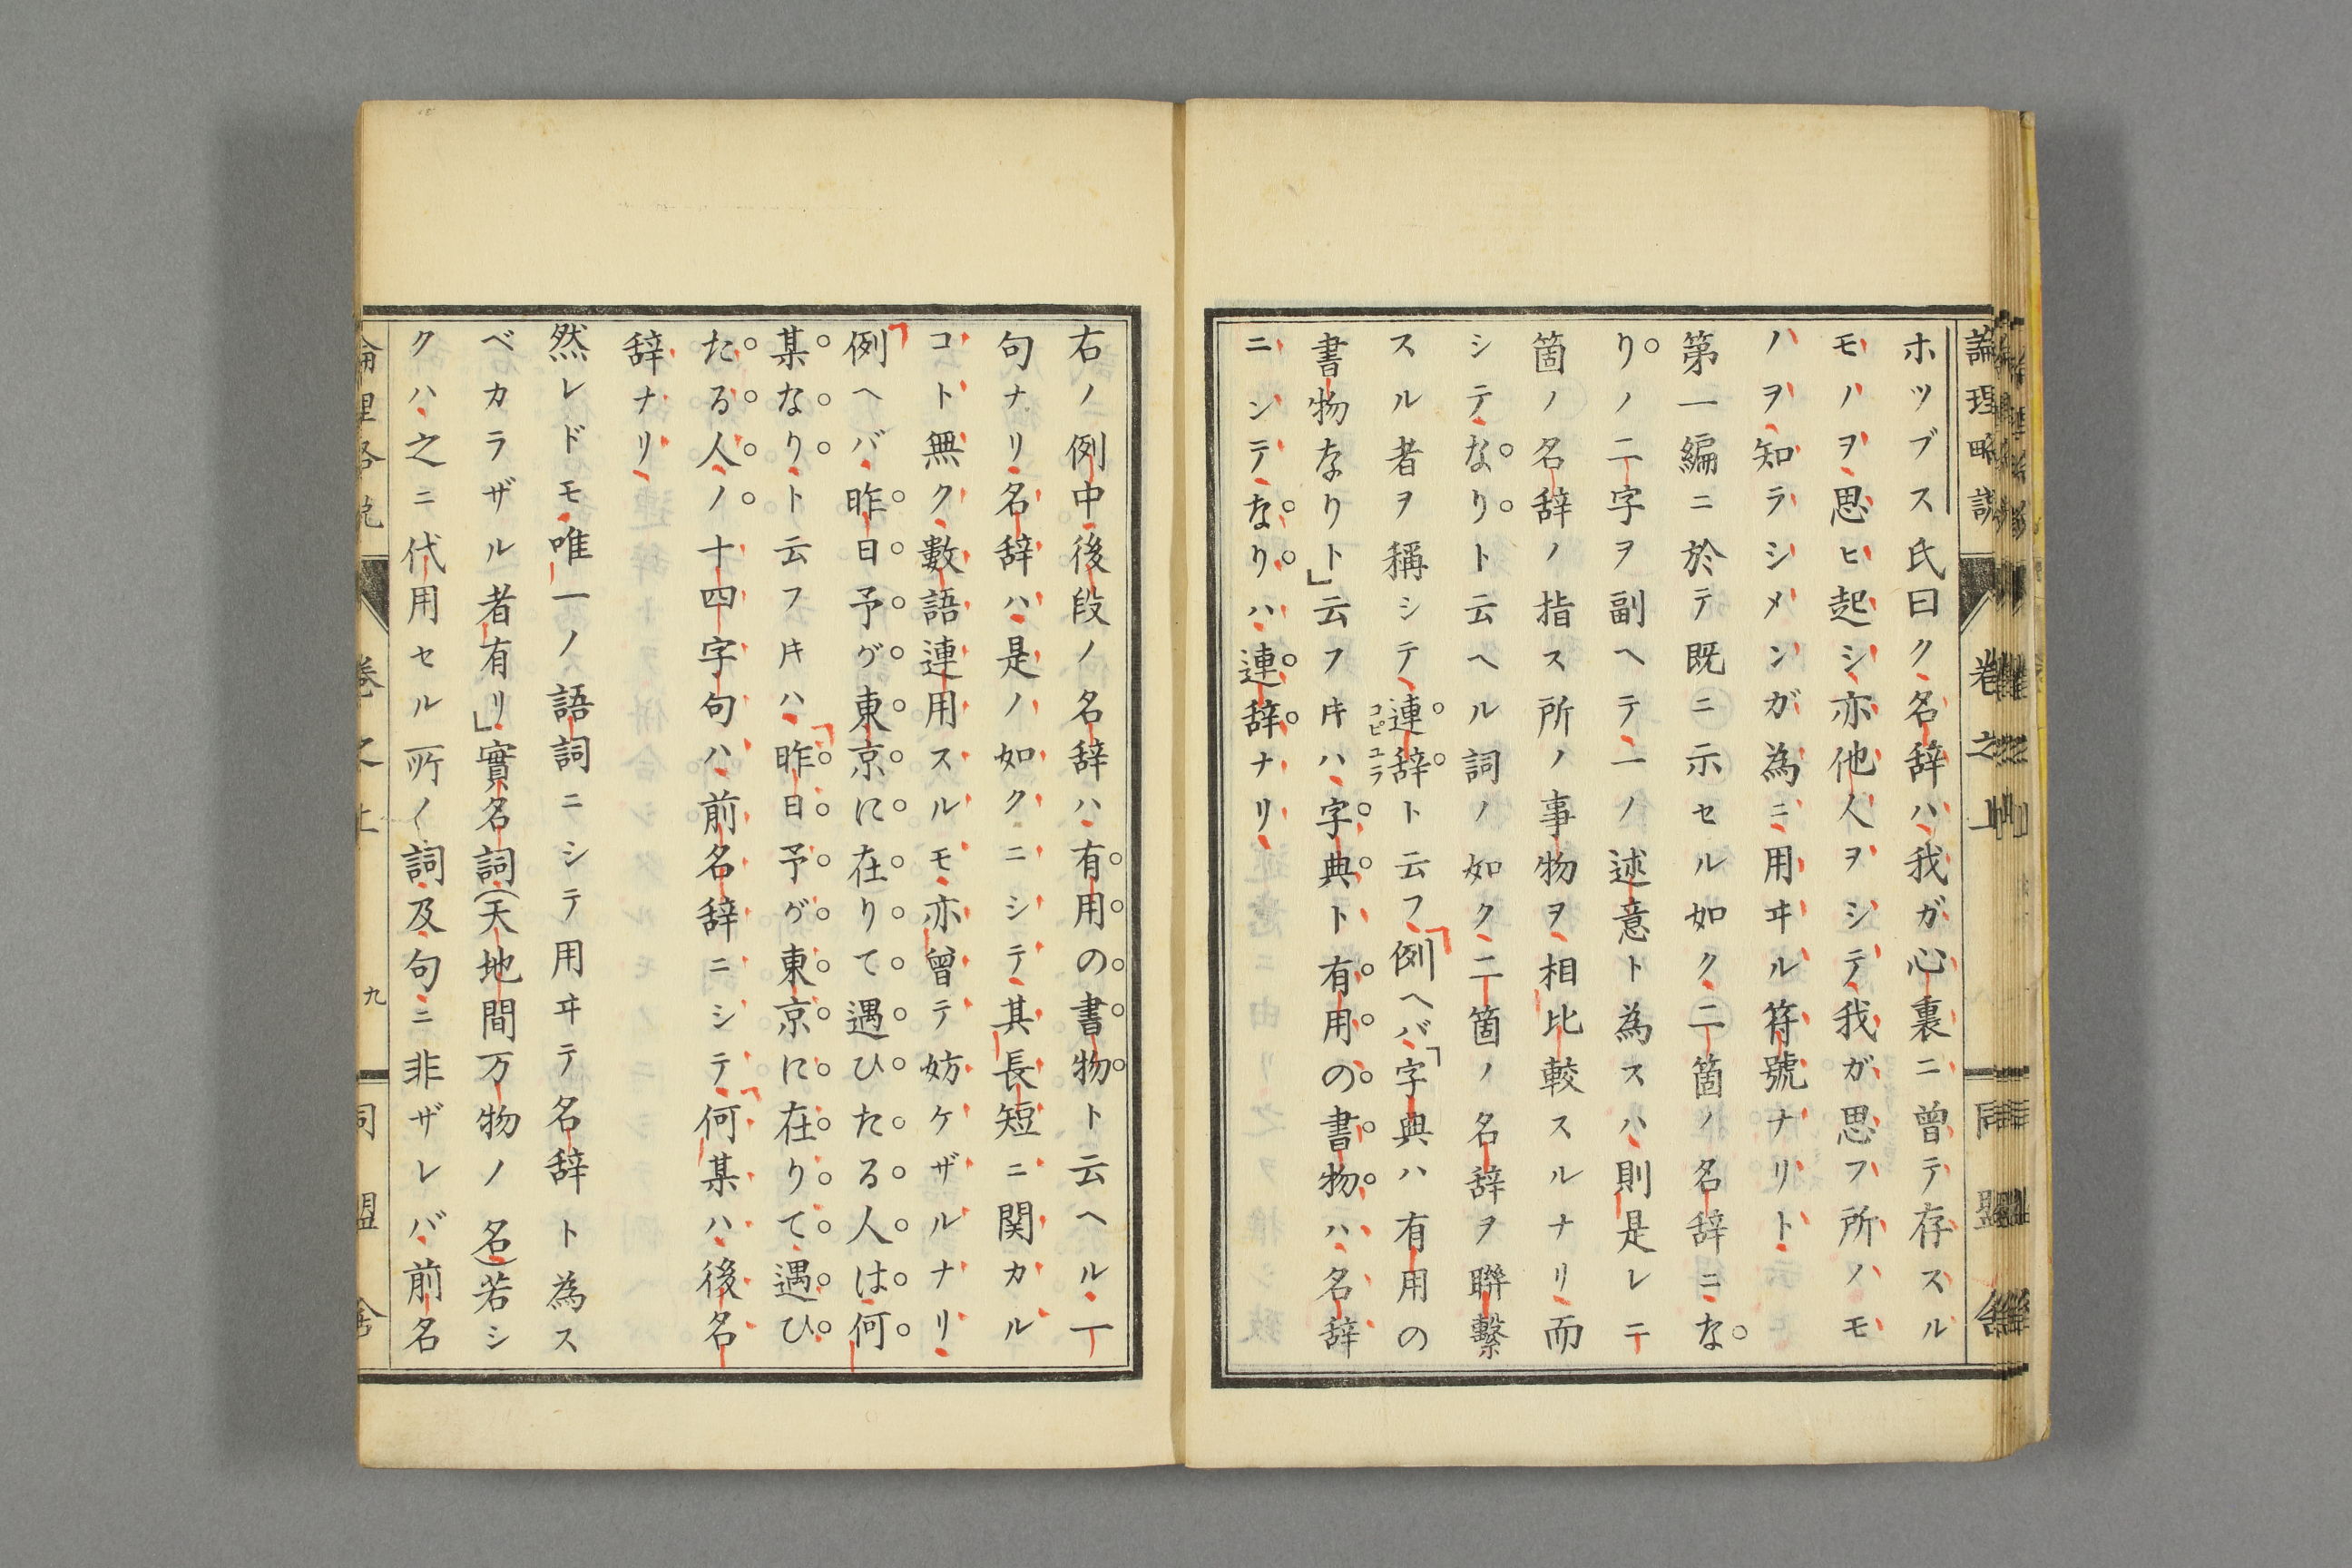 論理略説 卷之上 同盟舎
ホッブス氏曰ク名辞ハ我ガ心裏ニ曾テ存スル
モノヲ思ヒ起シ亦他人ヲシテ我ガ思フ所ノモ
ノヲ知ラシメンガ為ニ用ヰル符號ナリト
第一編ニ於テ既ニ示セル如ク二箇ノ名辞ニな
りノ二字ヲ副ヘテ一ノ述意ト為スハ則是レ二
箇ノ名辞ノ指ス所ノ事物ヲ相比較スルナリ而
シテなりト云ヘル詞ノ如ク二箇ノ名辞ヲ聯繫
スル者ヲ稱シテ連辞ト云フ「例ヘバ「字典ハ有用の
コピユラ
書物なりト」云フ𪜈ハ字典ト有用の書物ハ名辞
ニシテなりハ連辞ナリ
右ノ例中後段ノ名辞ハ有用の書物ト云ヘル一
句ナリ名辞ハ是ノ如クニシテ其長短ニ関カル
コト無ク數語連用スルモ亦曾テ妨ケザルナリ
「例ヘバ昨日予ガ東京に在りて遇ひたる人は何
某なりト云フ𪜈ハ「昨日予ガ東京に在りて遇ひ
たる人ノ十四字句ハ前名辞ニシテ「何某ハ後名
辞ナリ
然レドモ唯一ノ語詞ニシテ用ヰテ名辞ト為ス
ベカラザル者有リ」實名詞(天地間万物ノ名)若シ
クハ之ニ代用セル所ノ詞及句ニ非ザレバ前名
論理略説 卷之上 九 同盟舎